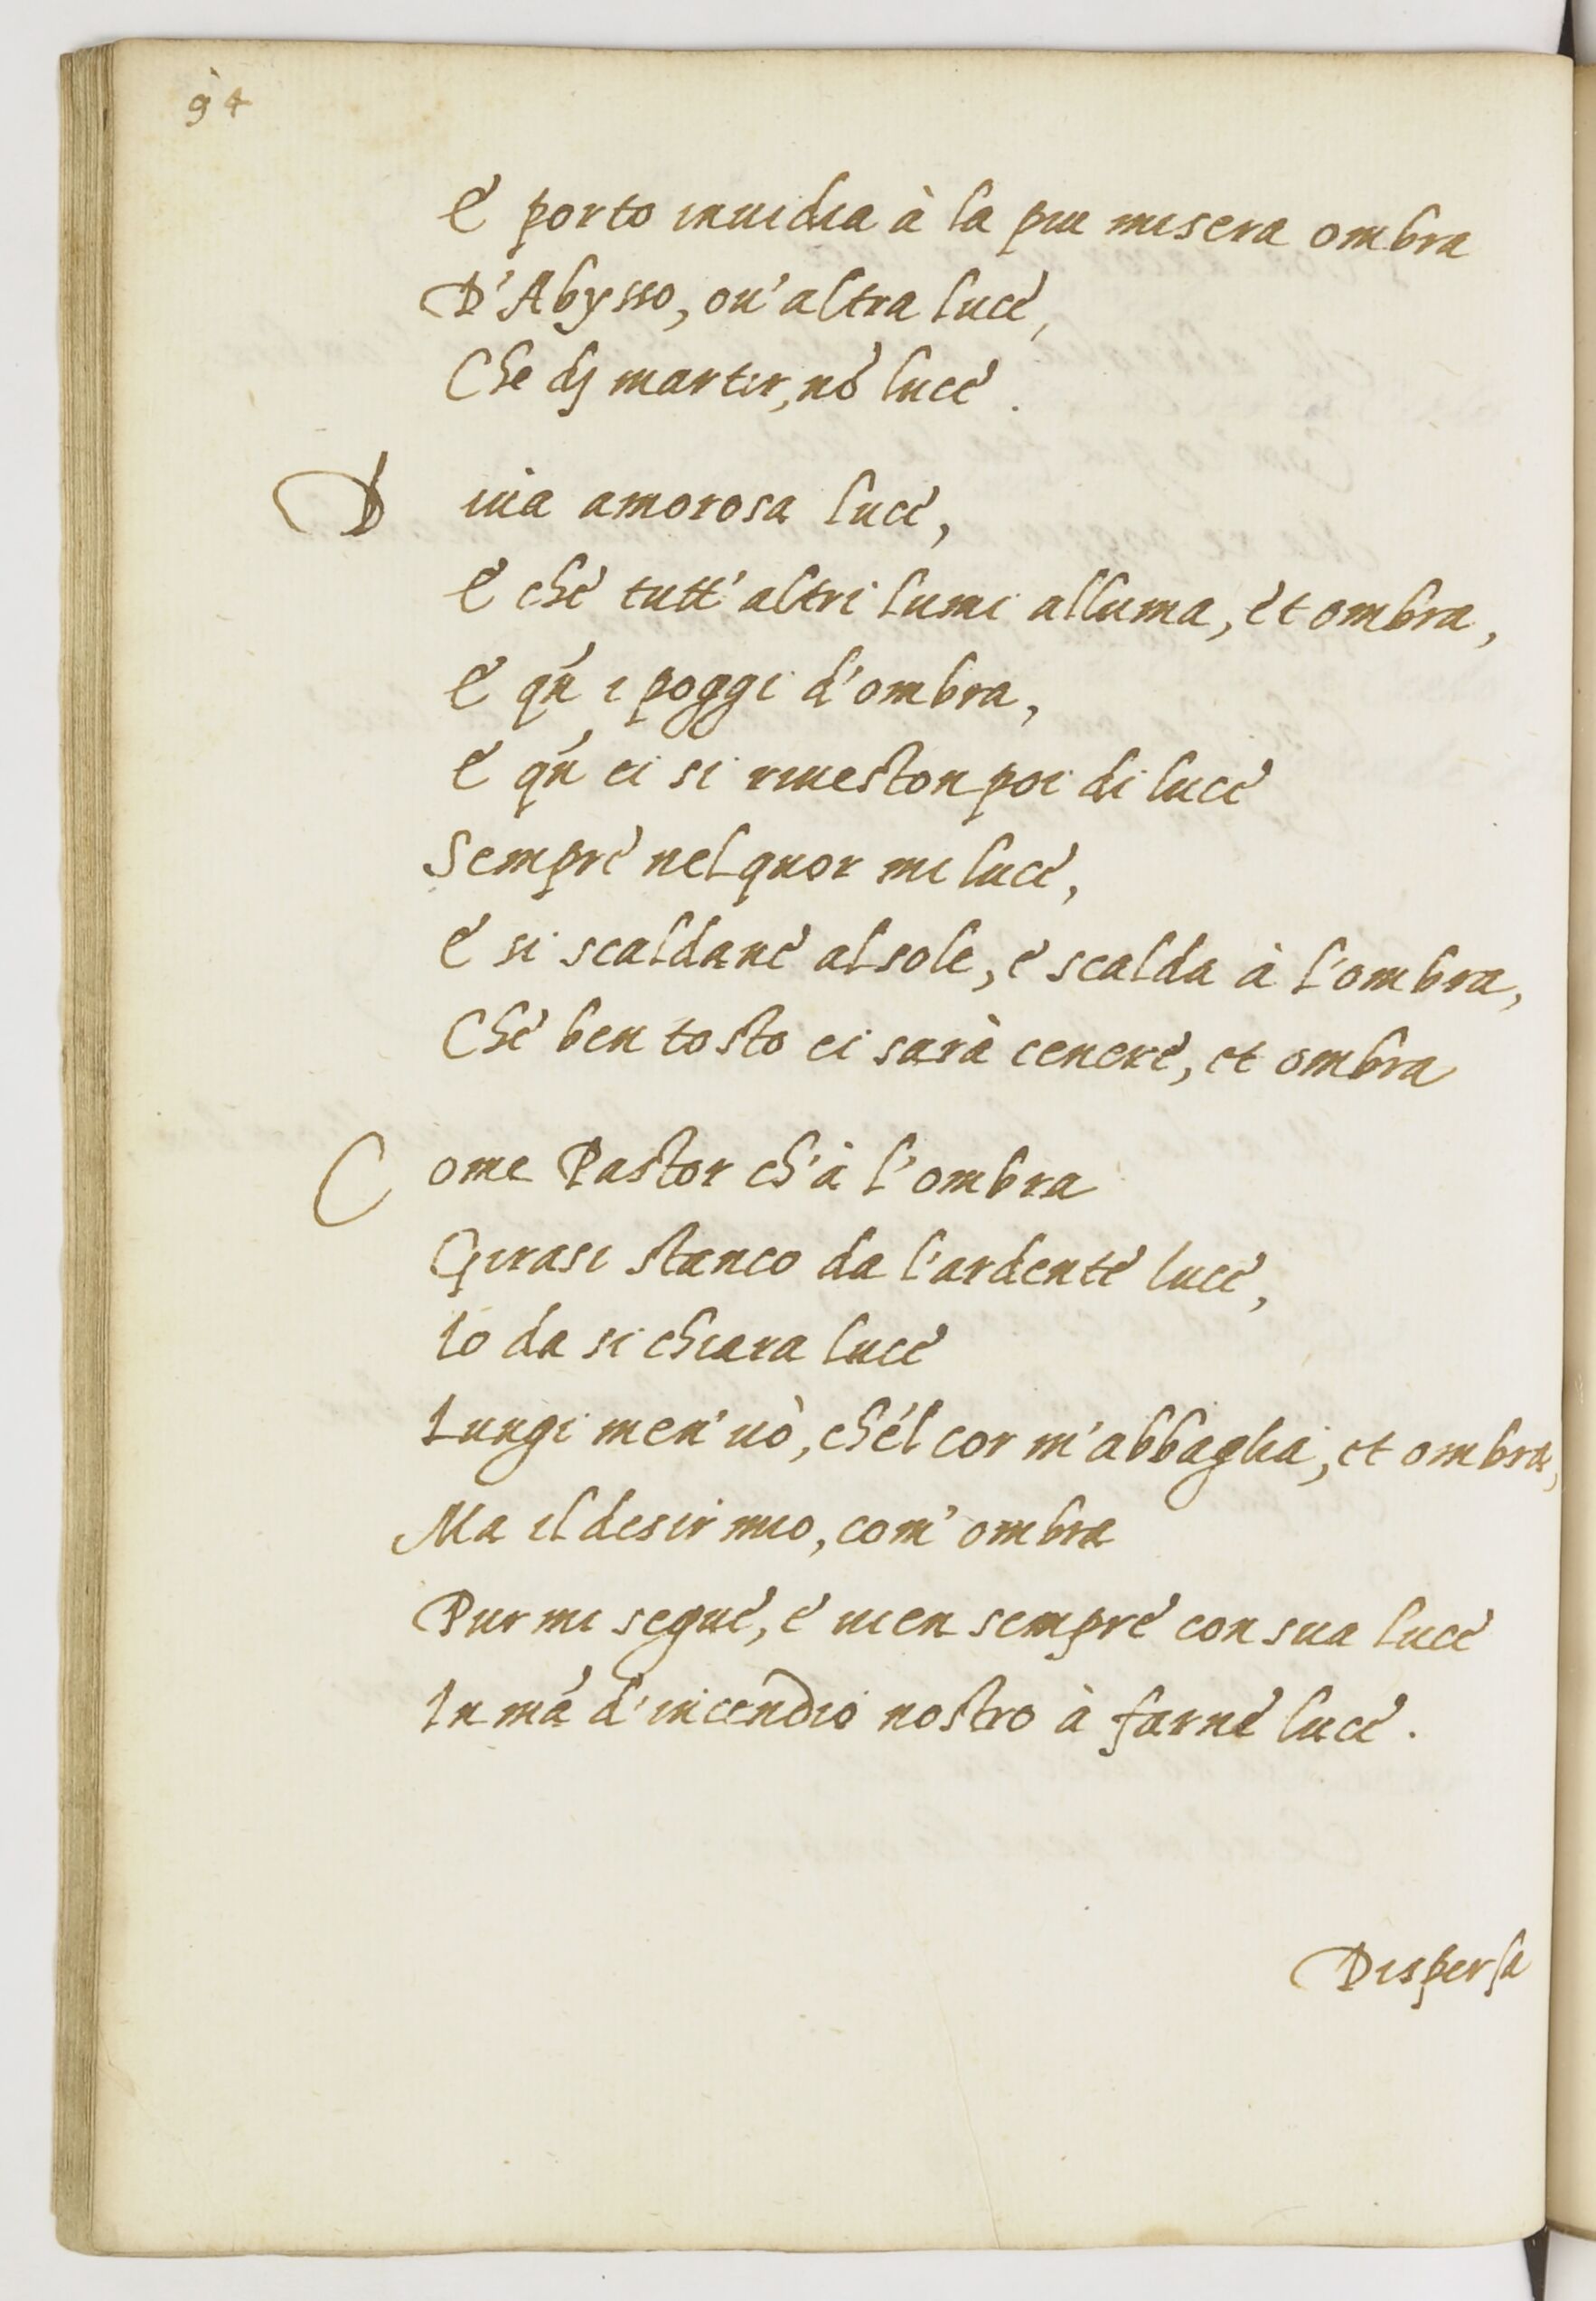 94
E porto inuidia à la piu misera ombra
D'Abysso, ou' altra luce,
Che dj martir, nō luce.
D iua amorosa luce,
E che tutt' altri lumi alluma, et ombra,
E qń i poggi d'ombra,
E qń ei si riueston poi di luce
Sempre nel quor mi luce,
E si scaldane al sole, e scalda à l'ombra,
Che ben tosto ei sarà cenere, et ombra
C ome Pastor ch'à l'ombra
Girasi stanco da l'ardente luce,
Io da si chiara luce
Lungi men' uò, ch'él cor m'abbaglia, et ombra,
Ma il desir mio, com' ombra
Pur mi segue, e uien sempre con sua luce
In mā d'incendio nostro à farne luce.
Dispersa